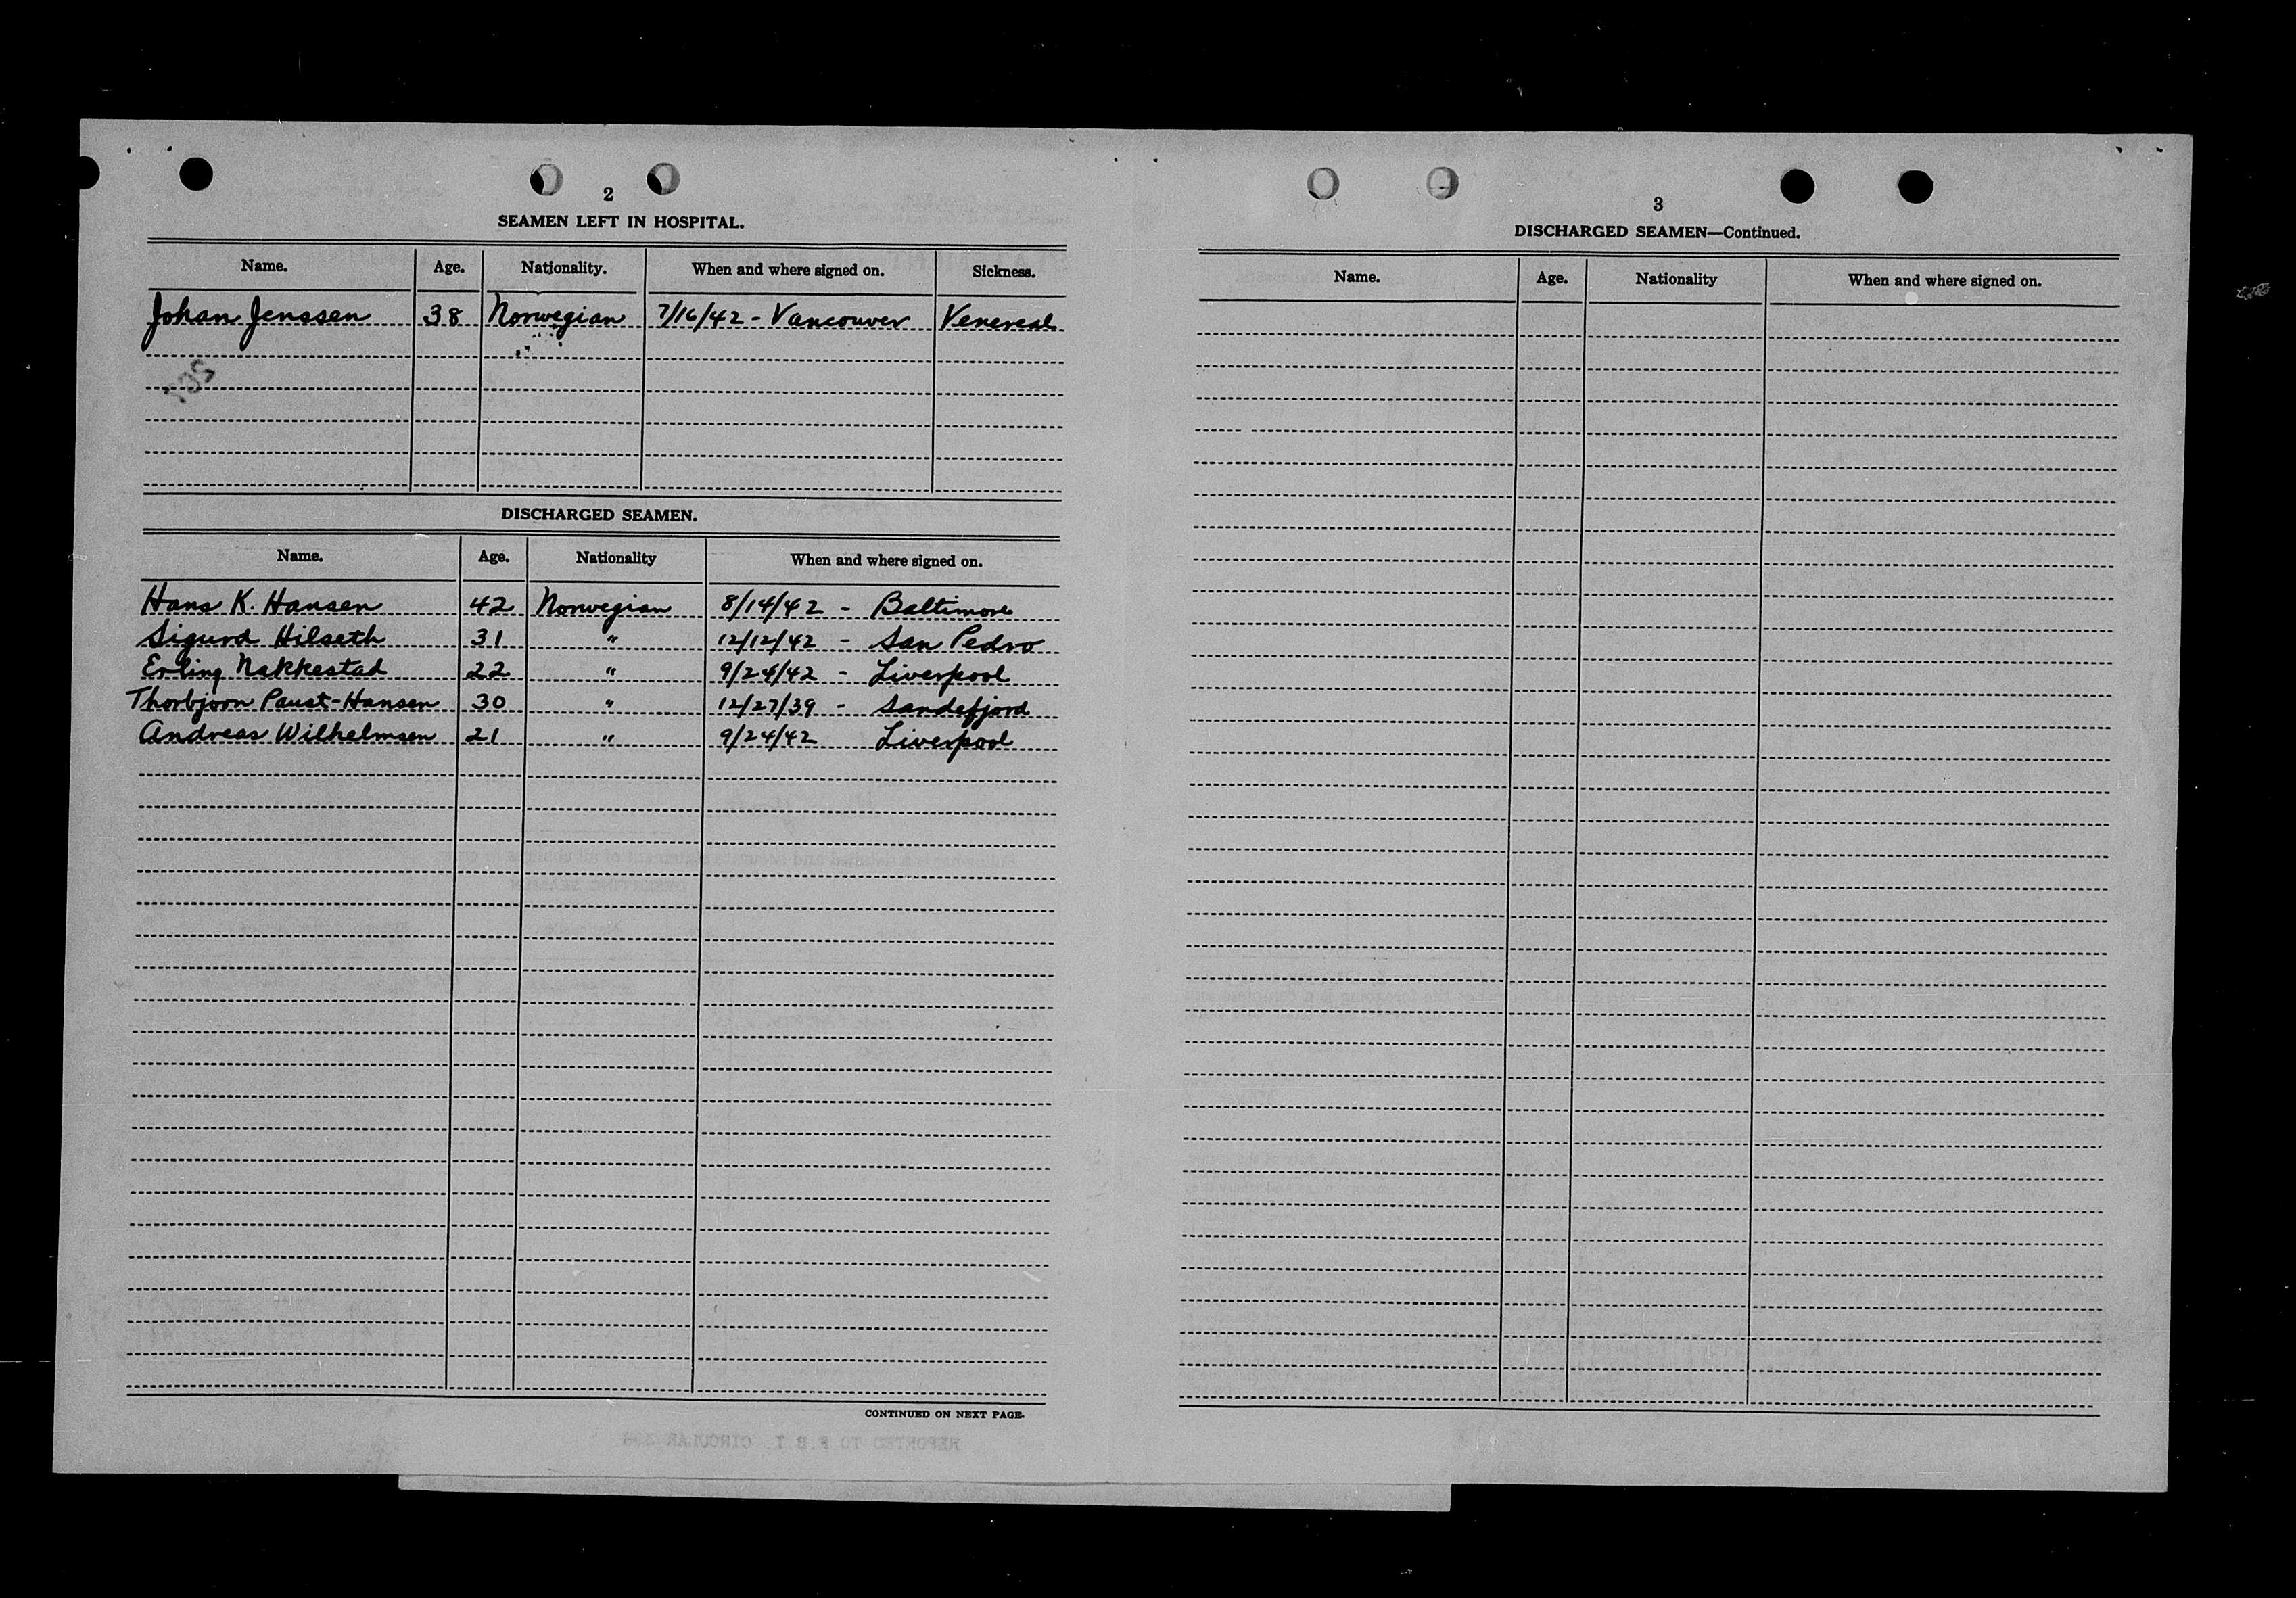 2
SEAMEN LEFT IN HOSPITAL.
Name. Age. Nationality. When and where signed on. Sickness.
Johan Jenssen 38 Norwegian 7/16/42 - Vancouver Venereal
DISCHARGED SEAMEN.
Name. Age. Nationality When and where signed on.
Hans K. Hansen 42 Norwegian 8/14/42 - Baltimore
Sigurd Hilseth 31 " 12/12/42 - San Pedro
Erling Nakkestad 22 " 9/24/42 - Liverpool
Thorbjorn Paust-Hansen 30 " 12/27/39 - Sandefjord
Andreas Wilhelmsen 21 " 9/24/42 Liverpool
CONTINUED ON NEXT PAGE.
3
DISCHARGED SEAMEN—Continued.
Name. Age. Nationality When and where signed on.